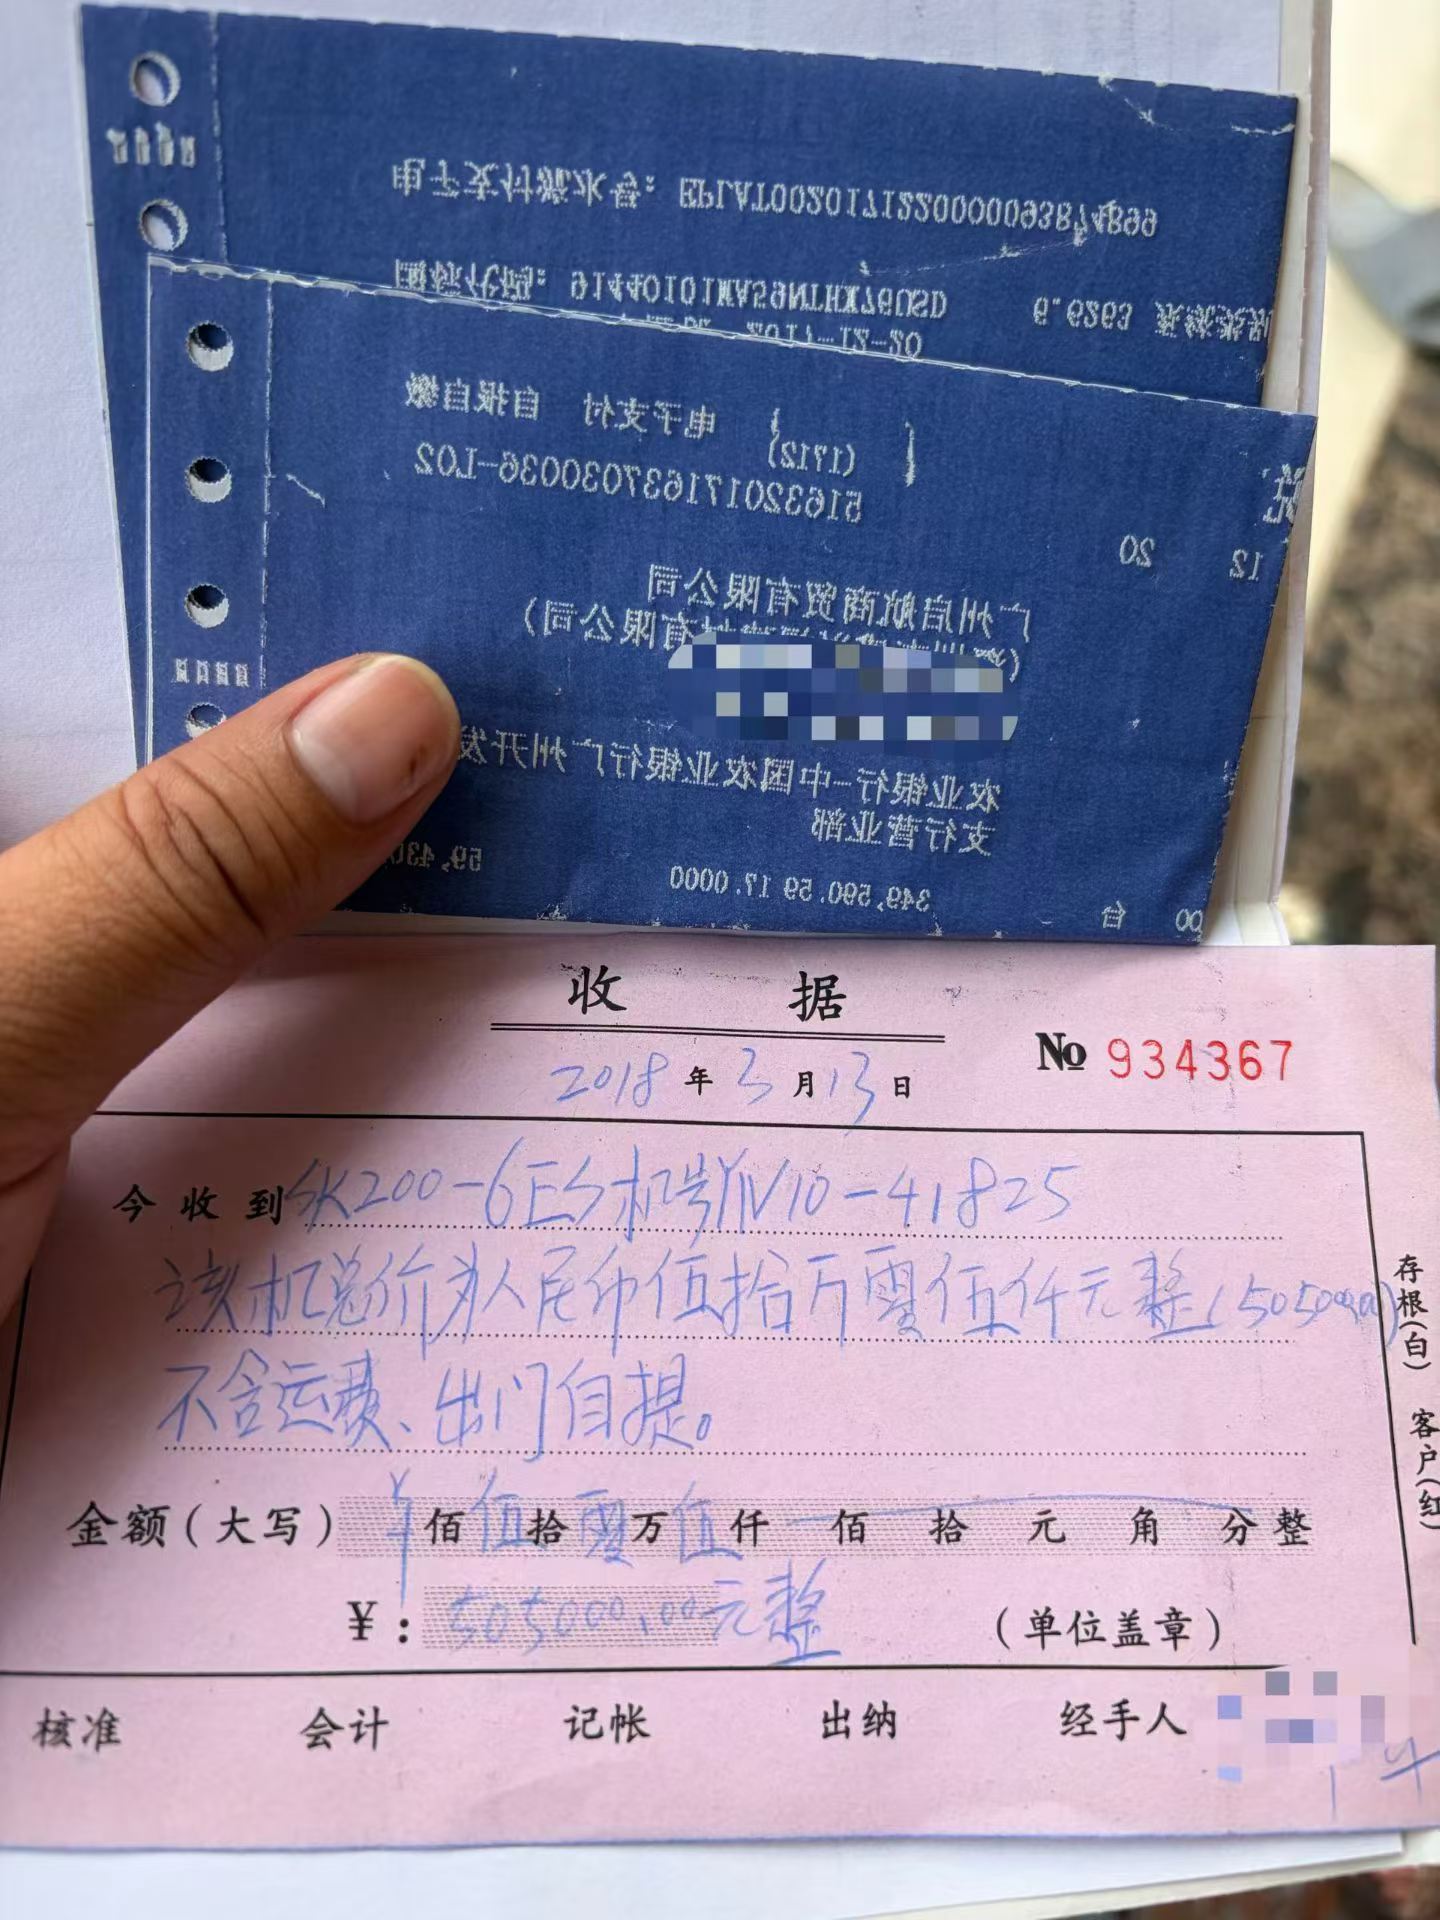 电子支付流水号：EPLAT0020171220000093874899
国标代码：91440101MA59NTHX76USD 6.6263
2017-12-20
自报自缴 电子支付
(1712)
516320171637030036-L02
12 20
广州启航商贸有限公司
有限公司)
农业银行-中国农业银行广州开发
支行营业部
349,590.59 17.0000 59,430
00 台
收 据
2018 年 3 月 13 日
No 934367
今收到 SK200-6ES机号YN10-41825
该机总价为人民币伍拾万零伍仟元整(505000.00)
不含运费、出门自提。
金额(大写) ¥ 佰 伍 拾 零 万 伍 仟 佰 拾 元 角 分 整
¥: 505000.00元整 (单位盖章)
核准 会计 记帐 出纳 经手人
存根(白) 客户(红)